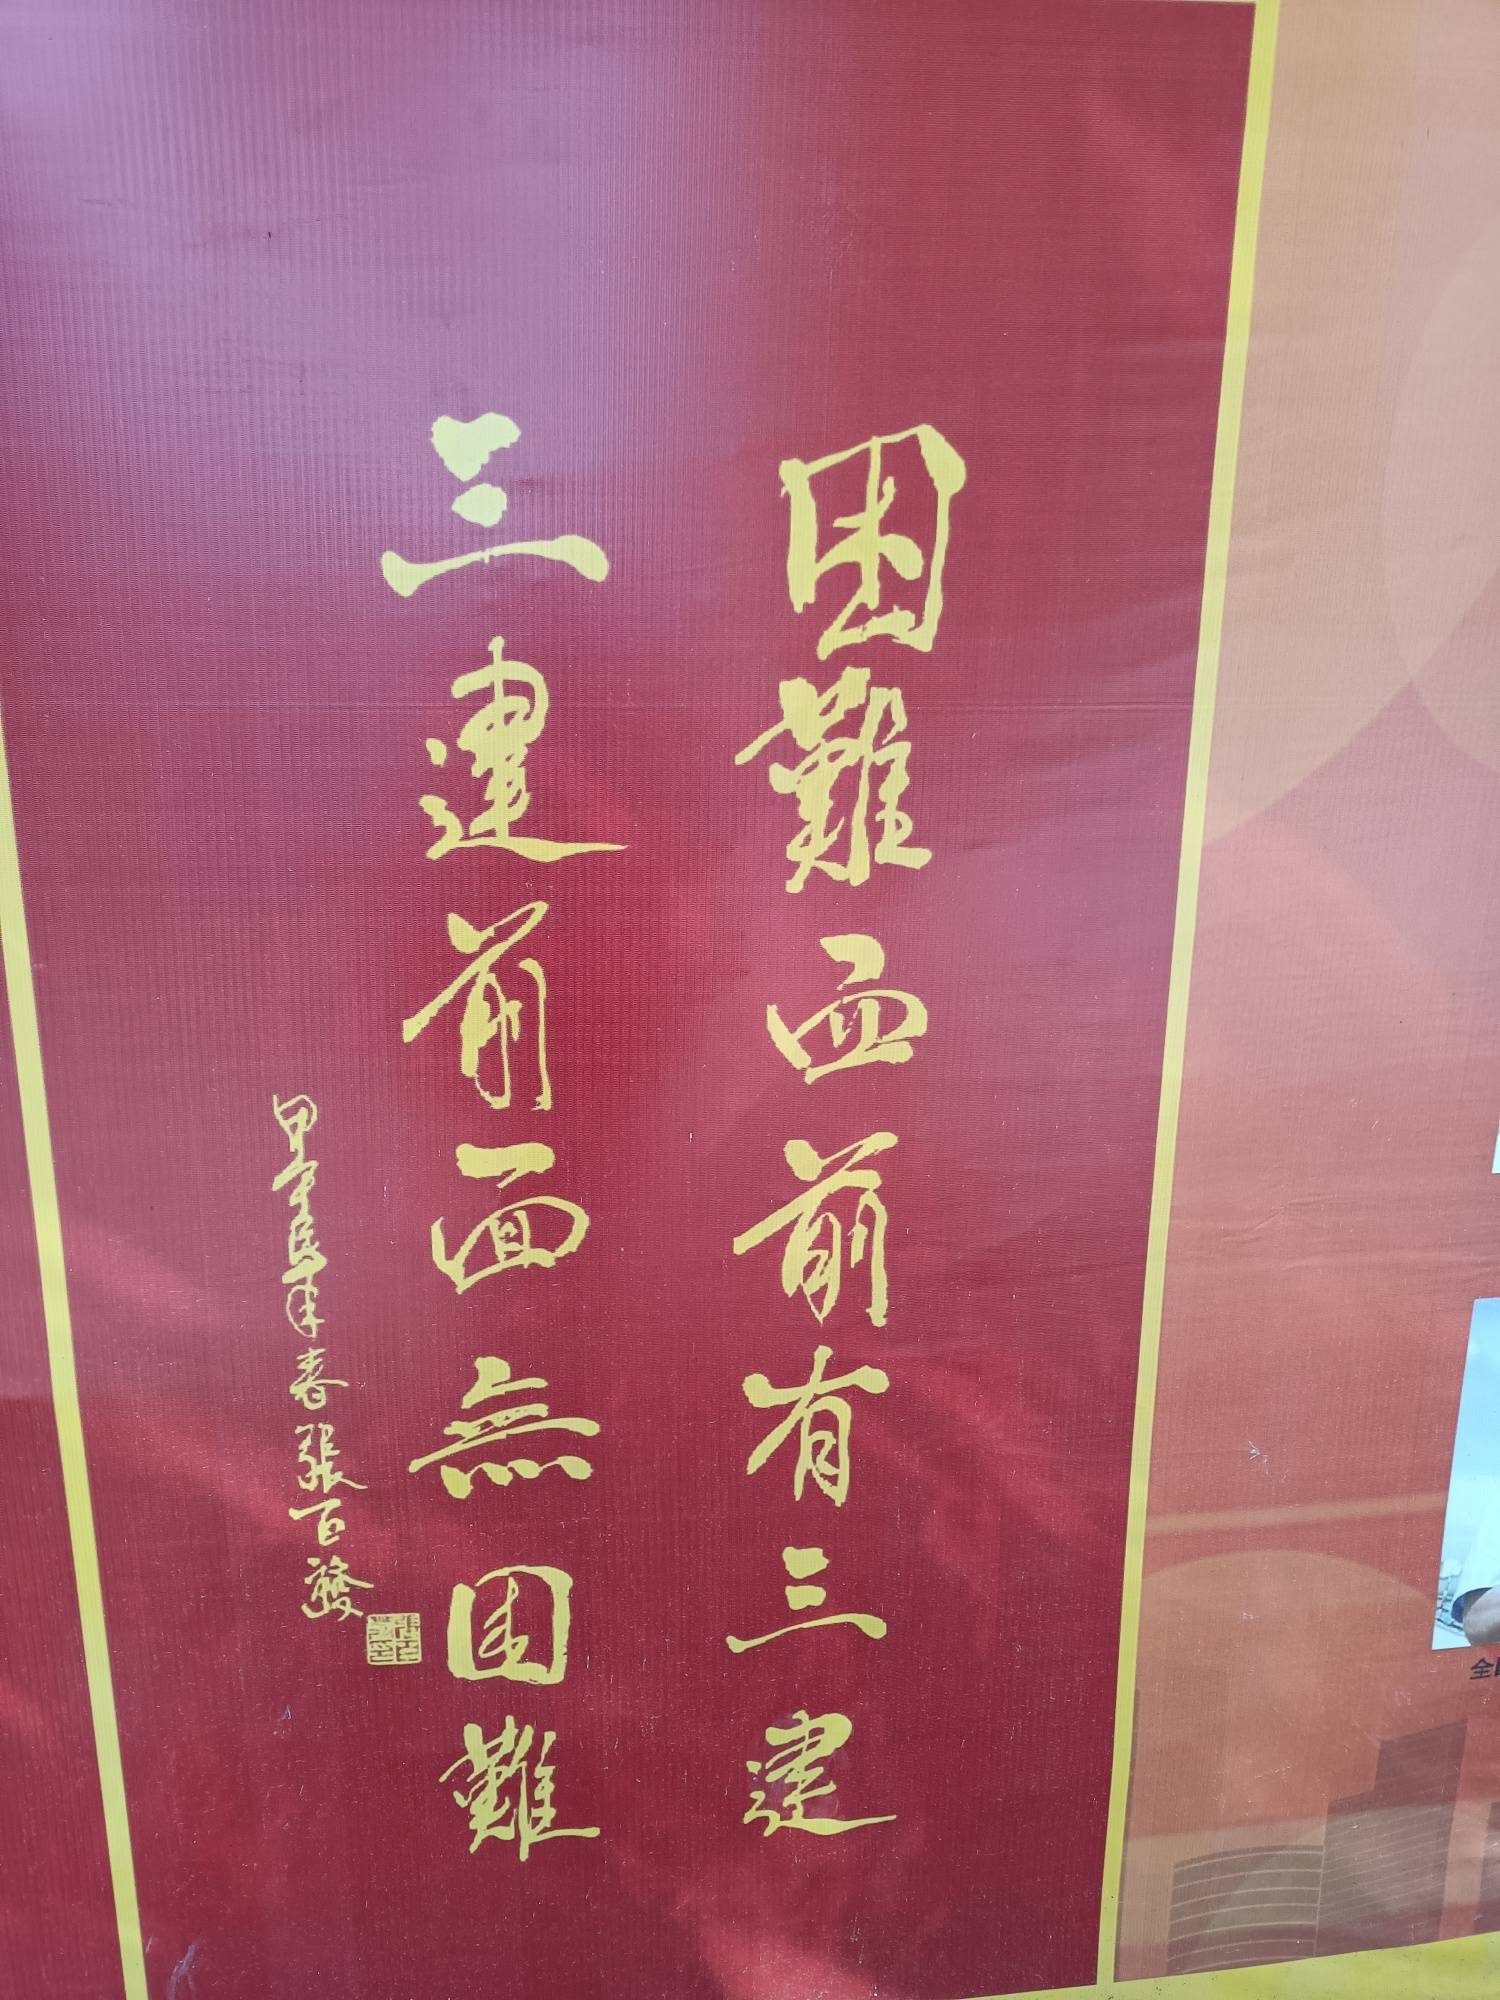 困難面前有三建
三建前面無困難
春張百發
全